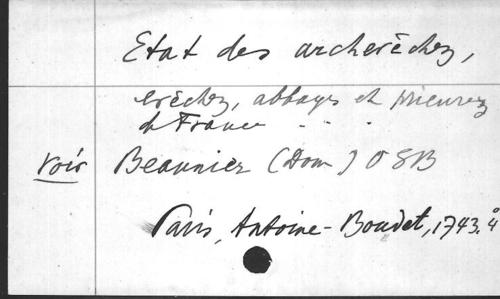 Etat des archevêchez,
evêchez, abbayes et prieurez
de France . . .
voir Beaunier (Dom) OSB
Paris, Antoine-Boudet, 1743. 4°